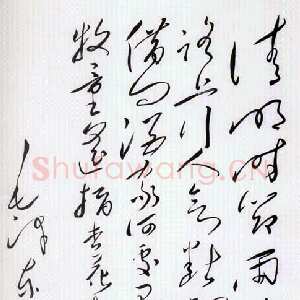 清明时节雨
路上行人欲断
借问酒家何处
牧童遥指杏花
毛泽东
Shufawang.CN